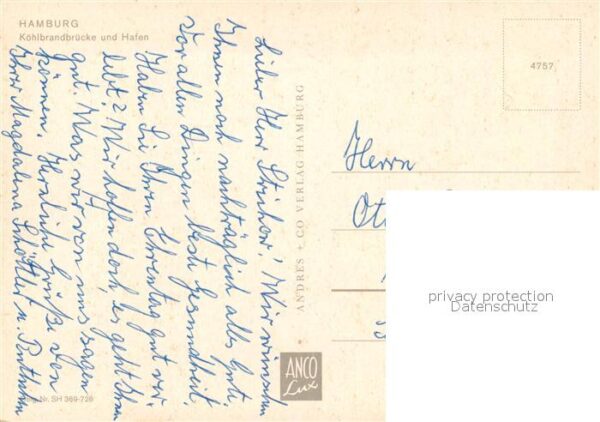 HAMBURG
Köhlbrandbrücke und Hafen
Lieber Herr ! Wir wünschen
Ihnen noch nachträglich alles Gute.
Vor allen Dingen beste Gesundheit.
Haben Sie Ihren Ehrentag gut ver-
lebt? Wir hoffen doch, es geht Ihnen
gut. Was wir von uns sagen
können. Herzliche Grüße von
Ihrer Magdalena u.
ANDRES + CO VERLAG HAMBURG
ANCO
Lux
4757
Herrn
Ot
privacy protection
Datenschutz
Nr. SH 369-726